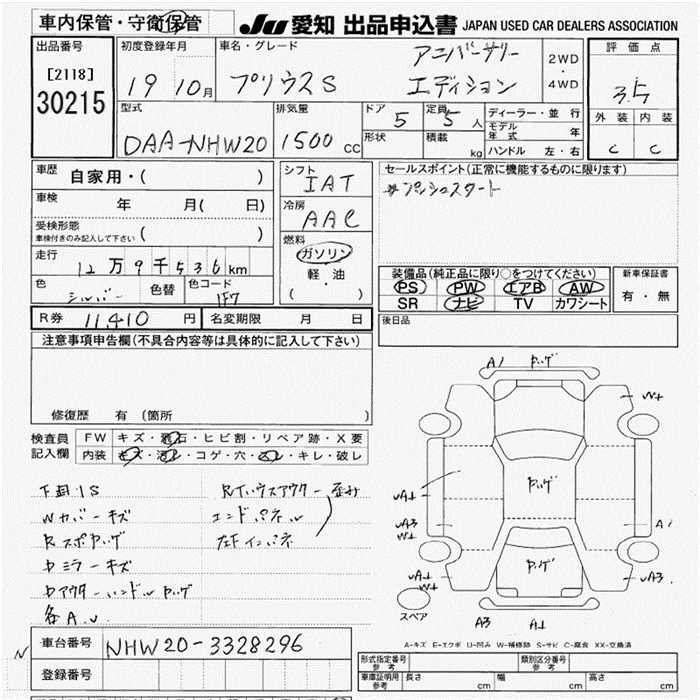 車内保管・守衛保管
JU 愛知 出品申込書 JAPAN USED CAR DEALERS ASSOCIATION
出品番号
[2118]
30215
初度登録年月
19 10月
車名・グレード
プリウスS
アニバーサリー
エディション
2WD
・
4WD
評価点
3.5
外装 内装
C C
型式
DAA-NHW20
排気量
1500 cc
ドア 5
形状
定員 5 人
積載 kg
ディーラー・並行
モデル年式 年
ハンドル 左・右
車歴
自家用・( )
車検 年 月( 日)
受検形態
車検付きのみ記入して下さい ( )
走行
12万9千536km
色 シルバー 色替 色コード 1F7
シフト
IAT
冷房
AAC
燃料
ガソリン
軽・油
( ・ )
セールスポイント(正常に機能するものに限ります)
※プッシュスタート
装備品(純正品に限り○をつけてください)
PS PW エアB AW
SR ナビ TV カワシート
新車保証書
有・無
後日品
R券 11,410 円 名変期限 月 日
注意事項申告欄(不具合内容等は具体的に記入して下さい)
修復歴 有 (箇所 )
検査員
記入欄
FW キズ・飛石・ヒビ割・リペア跡・X要
内装 キズ・汚レ・コゲ・穴・スレ・キレ・破レ
下廻りS
Wカバーキズ
Rスポヤッゲ
Dミラーキズ
Dアウターハンドルヤッゲ
各A.U
Rインハウスアウター歪み
エンドパネル
左Fインパネ
A1 ヤッゲ
W+
ヤッゲ
A1
A3
W+
A1
ヤッゲ
A1
W+
A3
スペア
A3 A1
A-キズ E-エクボ U-凹み W-補修跡 S-サビ C-腐食 XX-交換済
車台番号 NHW20-3328296
登録番号
形式指定番号
参考
類別区分番号
参考
車庫証明用
参考
長さ cm 幅 cm 高さ cm